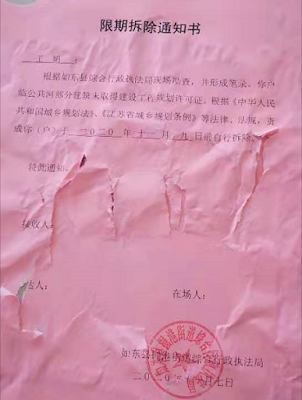 限期拆除通知书
王明:
根据如东县综合行政执法局现场勘查,并形成笔录,你户
临公共河部分建筑未取得建设工程规划许可证。根据《中华人民
共和国城乡规划法》、《江苏省城乡规划条例》等法律、法规,责
成你(户)于二〇二〇年十一月九日前自行拆除。
特此通知。
接收人:
人:
在场人:
如东县 港街道综合行政执法局
二〇二〇 月七日